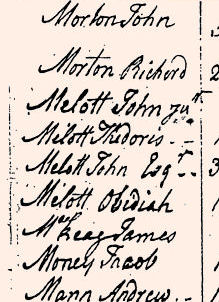 Morton John
Morton Richard 2
Melott John Junr
Melott Thedoris - - 1
Melott John Esqr - - 3
Melott Obidiah 1
McKeag James
Money Jacob 1
Mann Andrew -